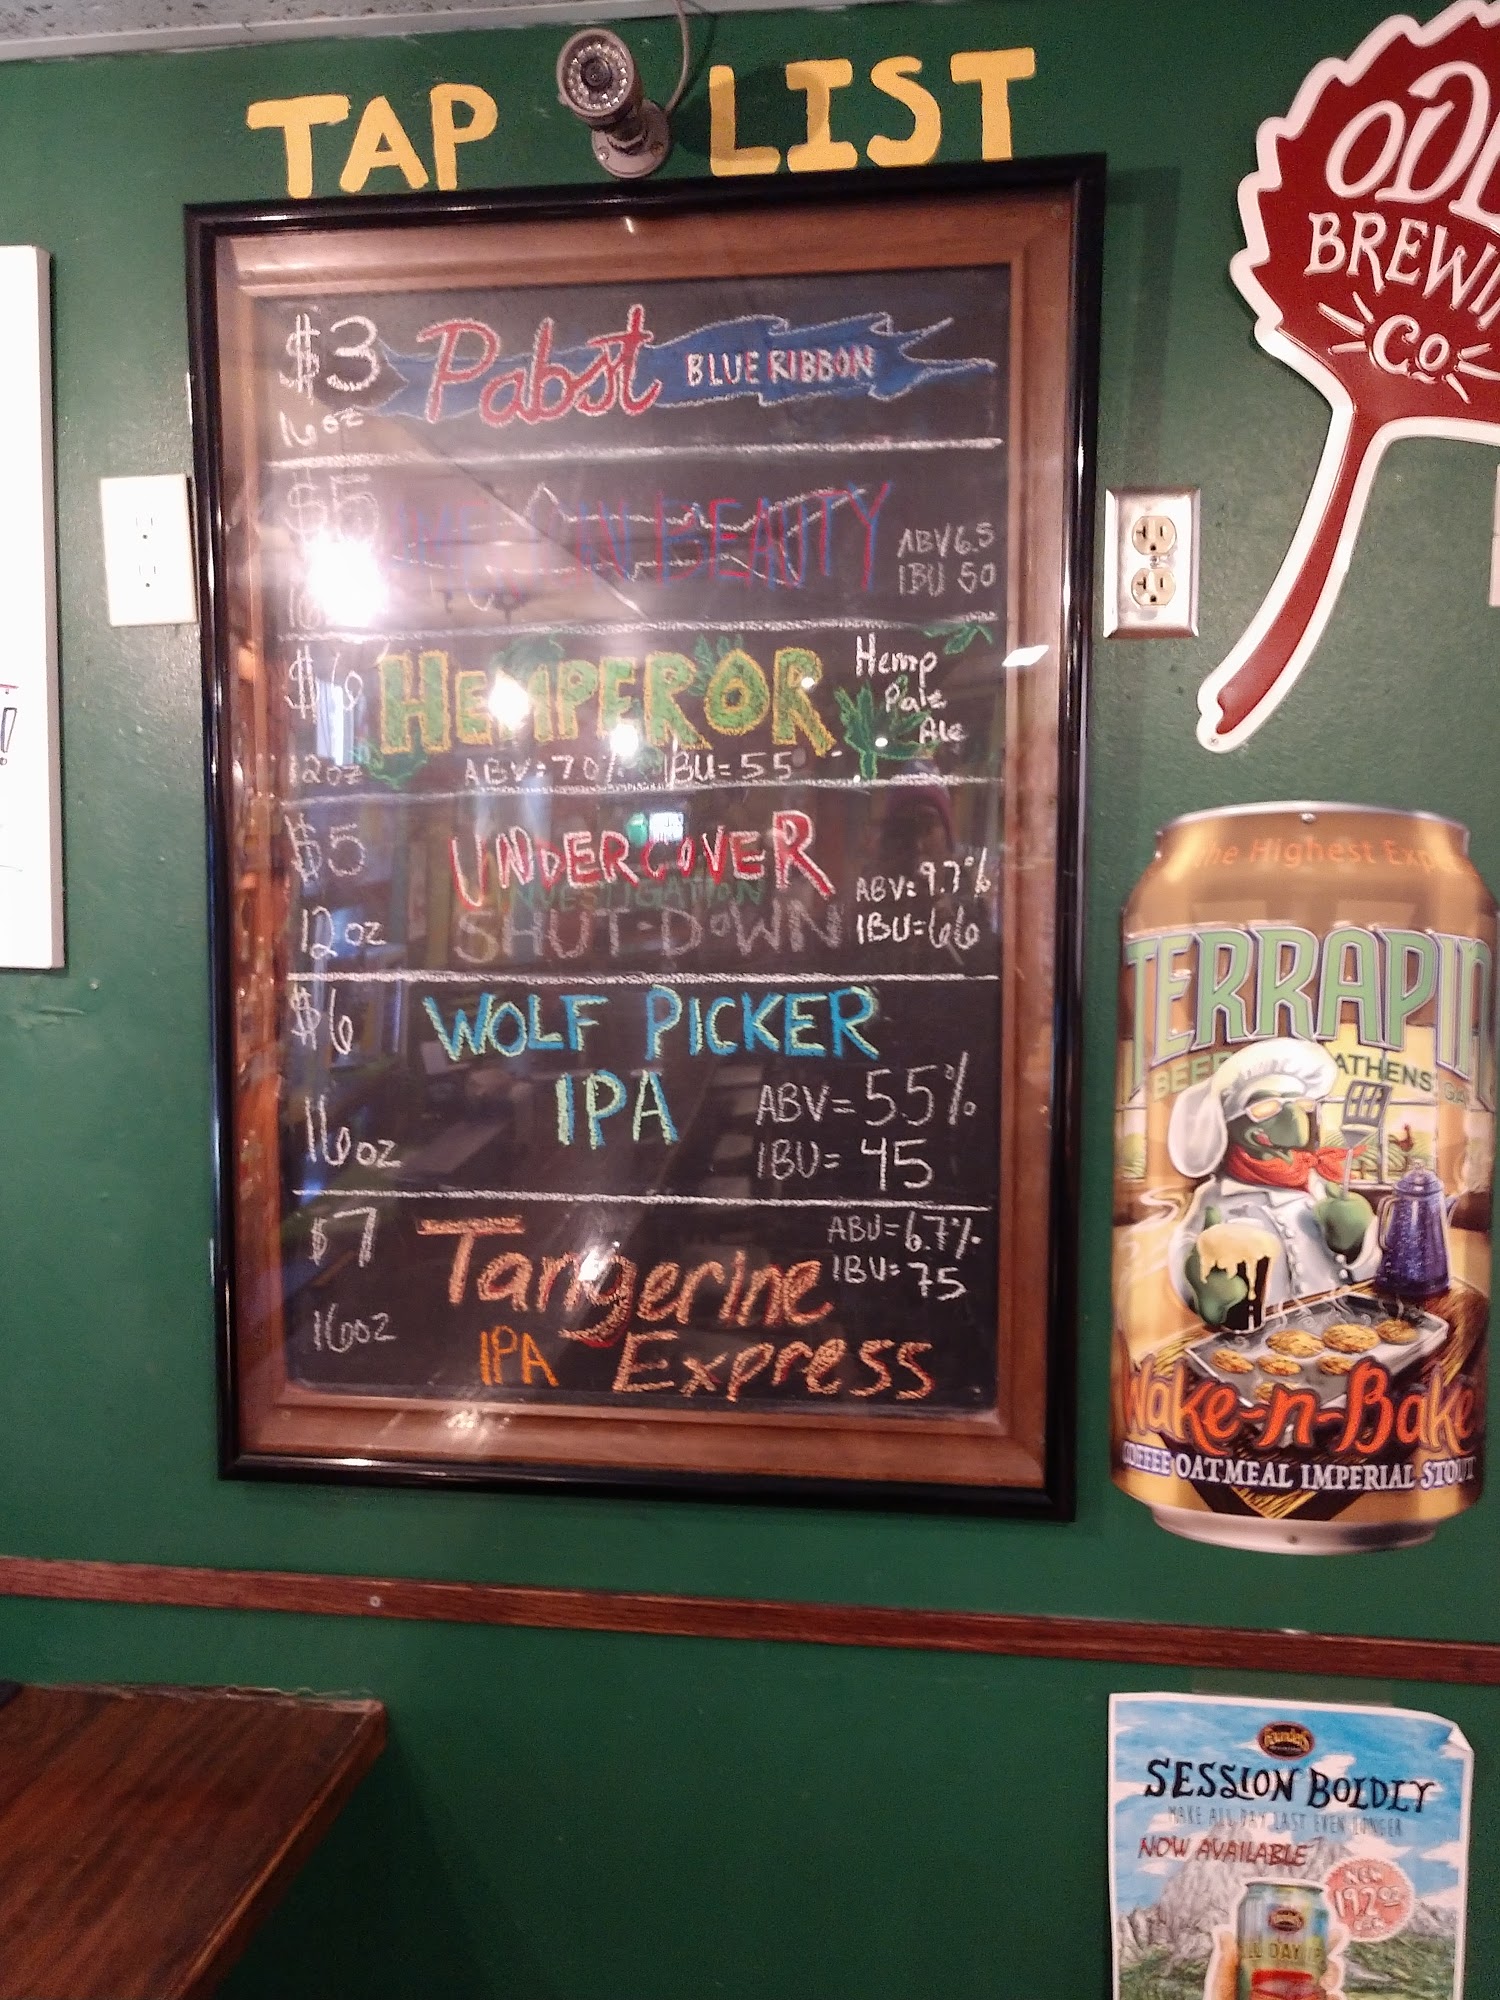 TAP LIST
$3 Pabst BLUE RIBBON
16oz
$5 AMERICAN BEAUTY
ABV 6.5
IBU 50
$6 HEMPEROR
Hemp
Pale
Ale
12oz ABV=7.0% IBU=55
$5 UNDERCOVER
INVESTIGATION
SHUT-DOWN
12oz
ABV=9.7%
IBU=66
$6 WOLF PICKER
IPA
16oz
ABV=5.5%
IBU=45
$7 Tangerine
IPA Express
16oz
ABU=6.7%
IBU=75
BREWIN
Co
The Highest Exp
TERRAPIN
BEER ATHENS GA
Wake-n-Bake
COFFEE OATMEAL IMPERIAL STOUT
Founders
SESSION BOLDLY
MAKE ALL DAY LAST EVEN LONGER
NOW AVAILABLE
NEW
19.2 oz
ALL DAY IP